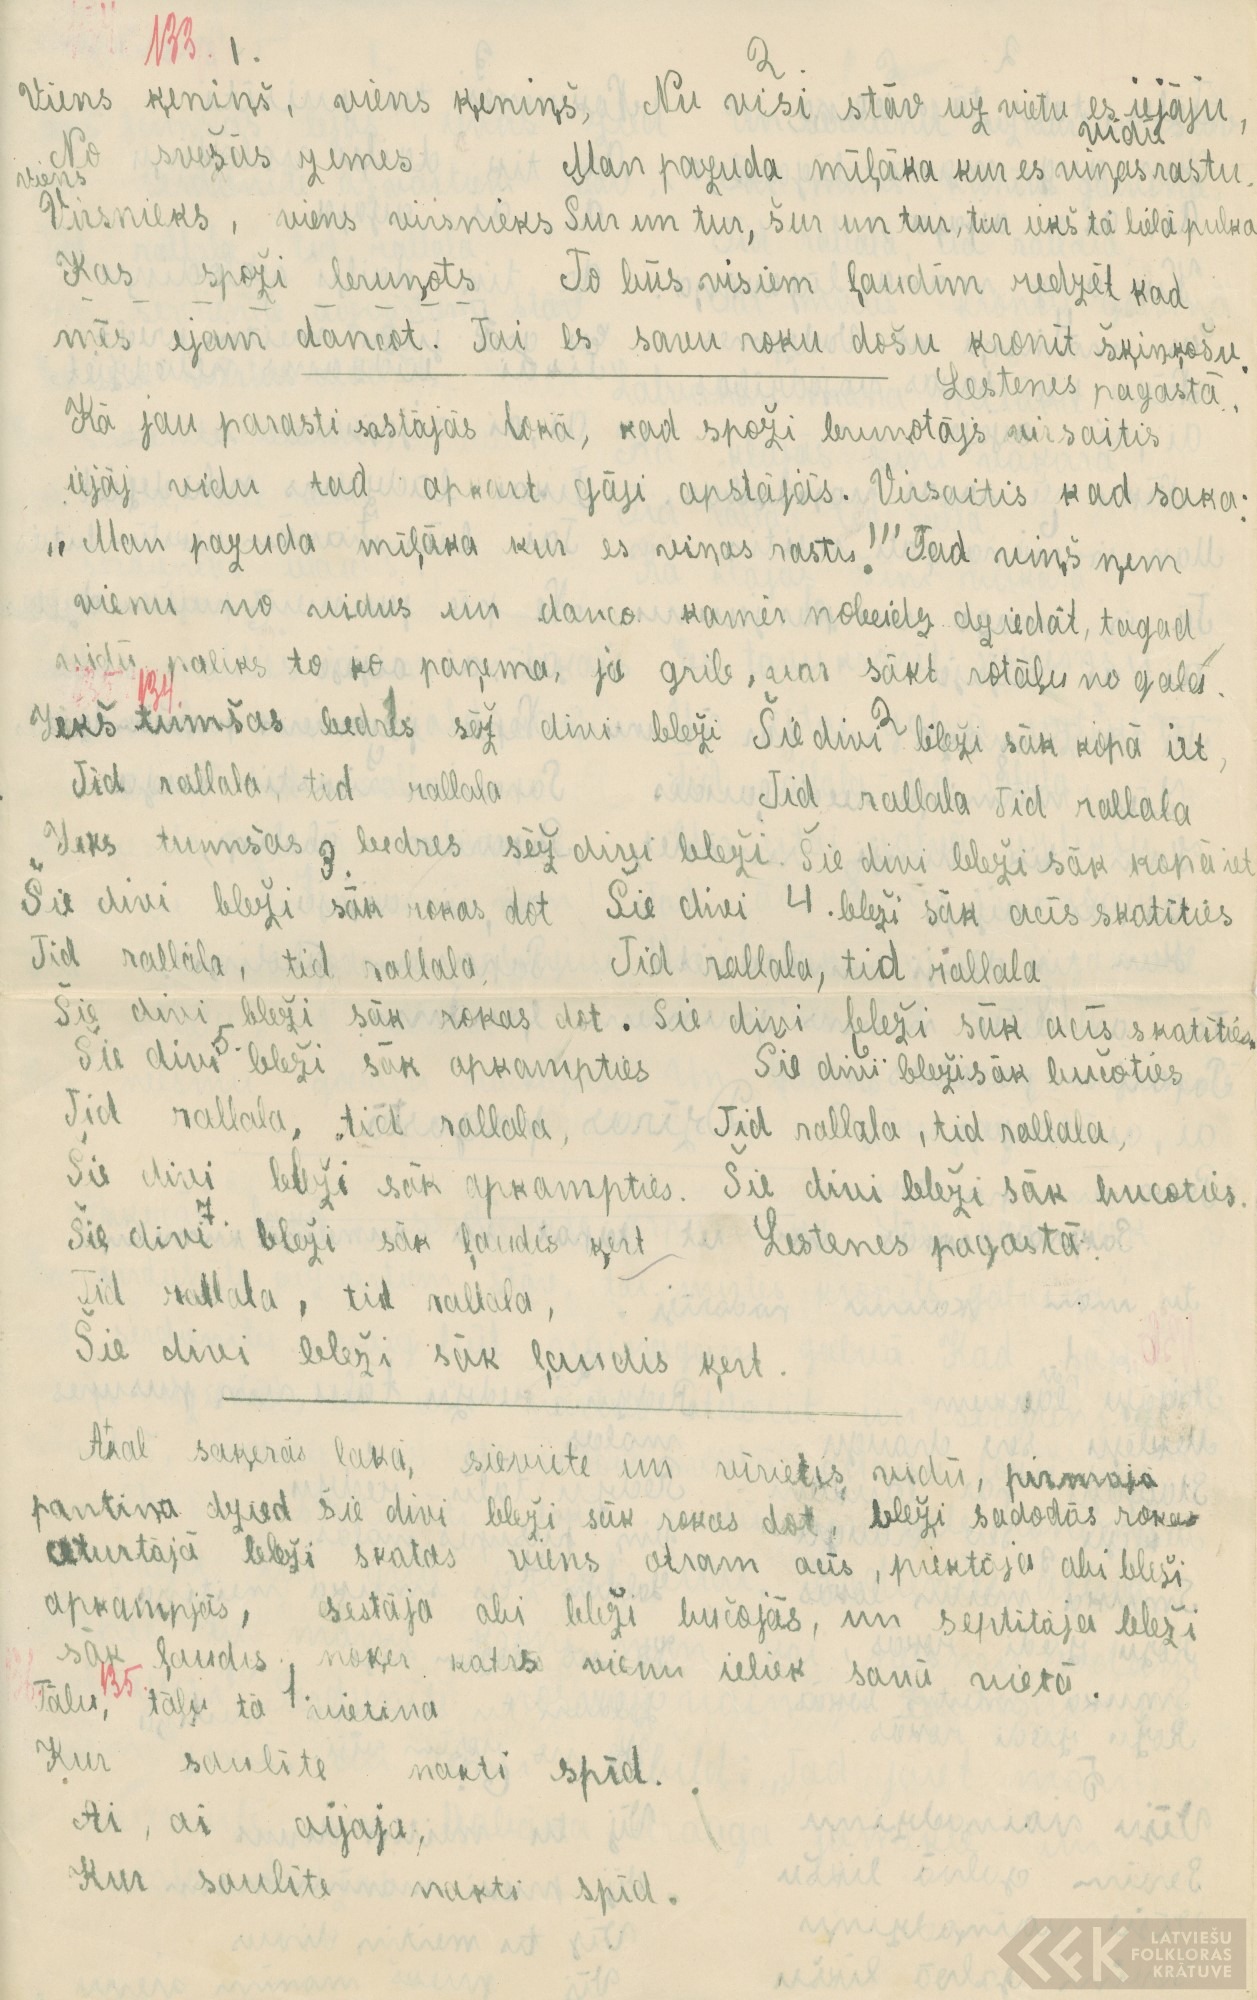 133. 1.
2.
Viens ķeniņš, viens ķeniņš, Nu visi stāv uz vietu es iejāju vidū,
No svešās zemes Man pazuda mīļāka kur es viņas rastu.
viens
Virsnieks, viens virsnieks Šur un tur, šur un tur, tur iekš tā lielā pulka
Kas spoži bruņots To būs visiem ļaudīm redzēt kad
mēs ejam dancot. Tai es savu roku došu kronīt šķiņķošu.
Lestenes pagastā.
Kā jau parasti sastājās lokā, kad spoži brunotājs virsaitis
iejāj vidu tad apkart gāji apstājās. Virsaitis kad saka:
„Man pazuda mīļāka kur es viņas rastu!!!" Tad viņš ņem
vienu no vidus un danco kamēr nobeidz dziedāt, tagad
vidū paliks to ko paņema, ja grib, var sākt rotāļu no gala.
134. 1 2
Iekš tumšas bedres sēž divi bleži Šie divi bleži sāk kopā iet,
Tid rallala, tid rallala Tid rallala Tid rallala
Ieks tumšas bedres sēž divi bleži. Šie divi bleži sāk kopā iet
3. 4.
Šie divi bleži sāk rokas dot Šie divi bleži sāk acīs skatīties
Tid rallala, tid rallala, Tid rallala, tid rallala
Šie divi bleži sāk rokas dot. Šie divi bleži sāk acīs skatīties.
5.
Šie divi bleži sāk apkampties Šie divi bleži sāk bučoties
Tid rallala, tid rallala, Tid rallala, tid rallala,
Šie divi bleži sāk apkampties. Šie divi bleži sāk bucoties.
7.
Šie divi bleži sāk ļaudis ķert Lestenes pagastā.
Tid rallala, tid rallala,
Šie divi bleži sāk ļaudis ķert.
Atkal sakerās laka, sieviite un vīrietis vidū, pirmajā
pantiņa dzied šie divi bleži sāk rokas dot, bleži sadodās rokas
aturtājā bleži skatas viens otram acīs, piektāja abi bleži
apkampjās, sestāja abi bleži bučojās, un septītāja bleži
sāk ļaudis noķer katrs vienu ieliek sanā vietā.
135. 1.
Tālu, tālu tā vietina
Kur saulīte nakti spīd.
Ai, ai aijaja,
Kur saulīte nakti spīd.
LATVIEŠU
FOLKLORAS
KRĀTUVE